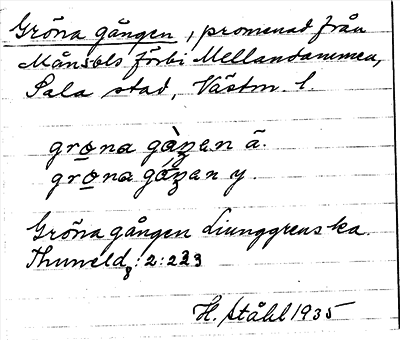 Gröna gången, promenad från
Månsols förbi Mellandammen,
Sala stad, Västm. l.
grọna gàŋen ä.
grọna gáŋan y.
Gröna gången Liunggrens ka.
Thuneld 8: 2: 223
H. Ståhl 1935